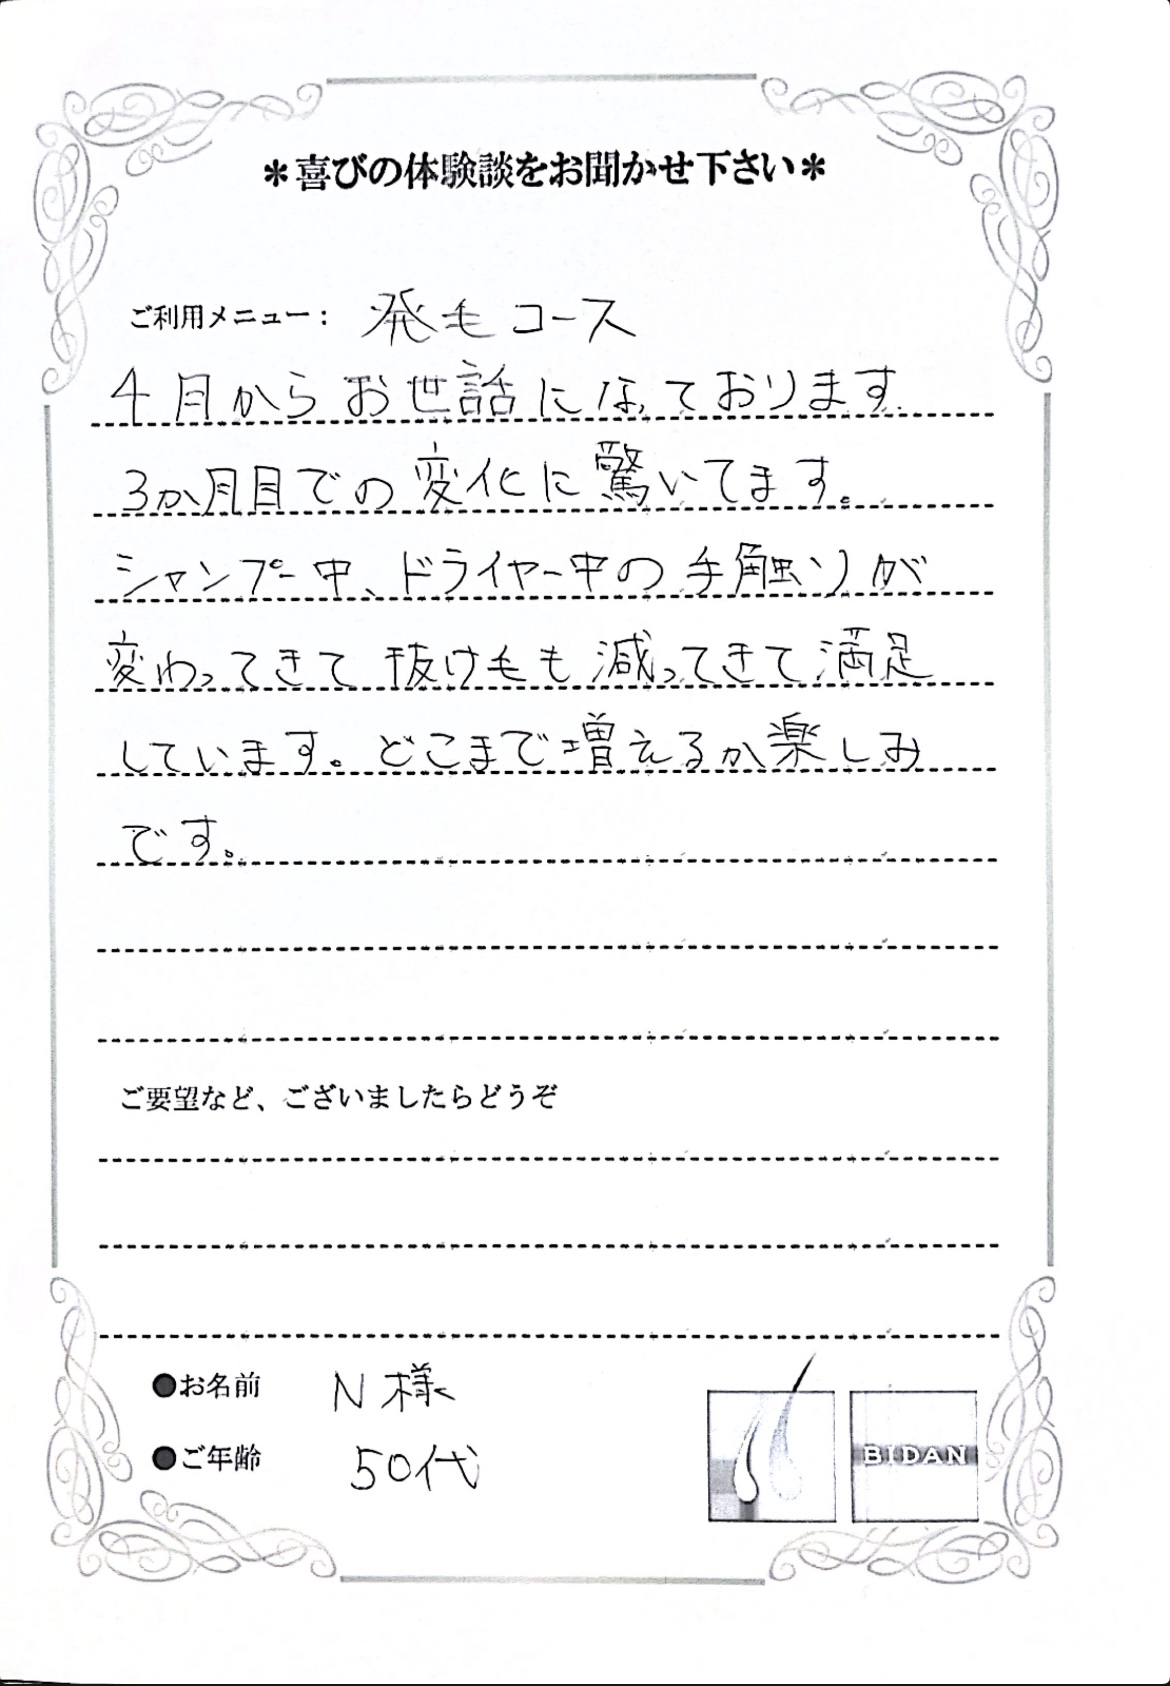 ＊喜びの体験談をお聞かせ下さい＊
ご利用メニュー： 発毛コース
4月からお世話になっております
3か月目での変化に驚いてます。
シャンプー中、ドライヤー中の手触りが
変わってきて抜け毛も減ってきて満足
しています。どこまで増えるか楽しみ
です。
ご要望など、ございましたらどうぞ
●お名前 N様
●ご年齢 50代
BIDAN